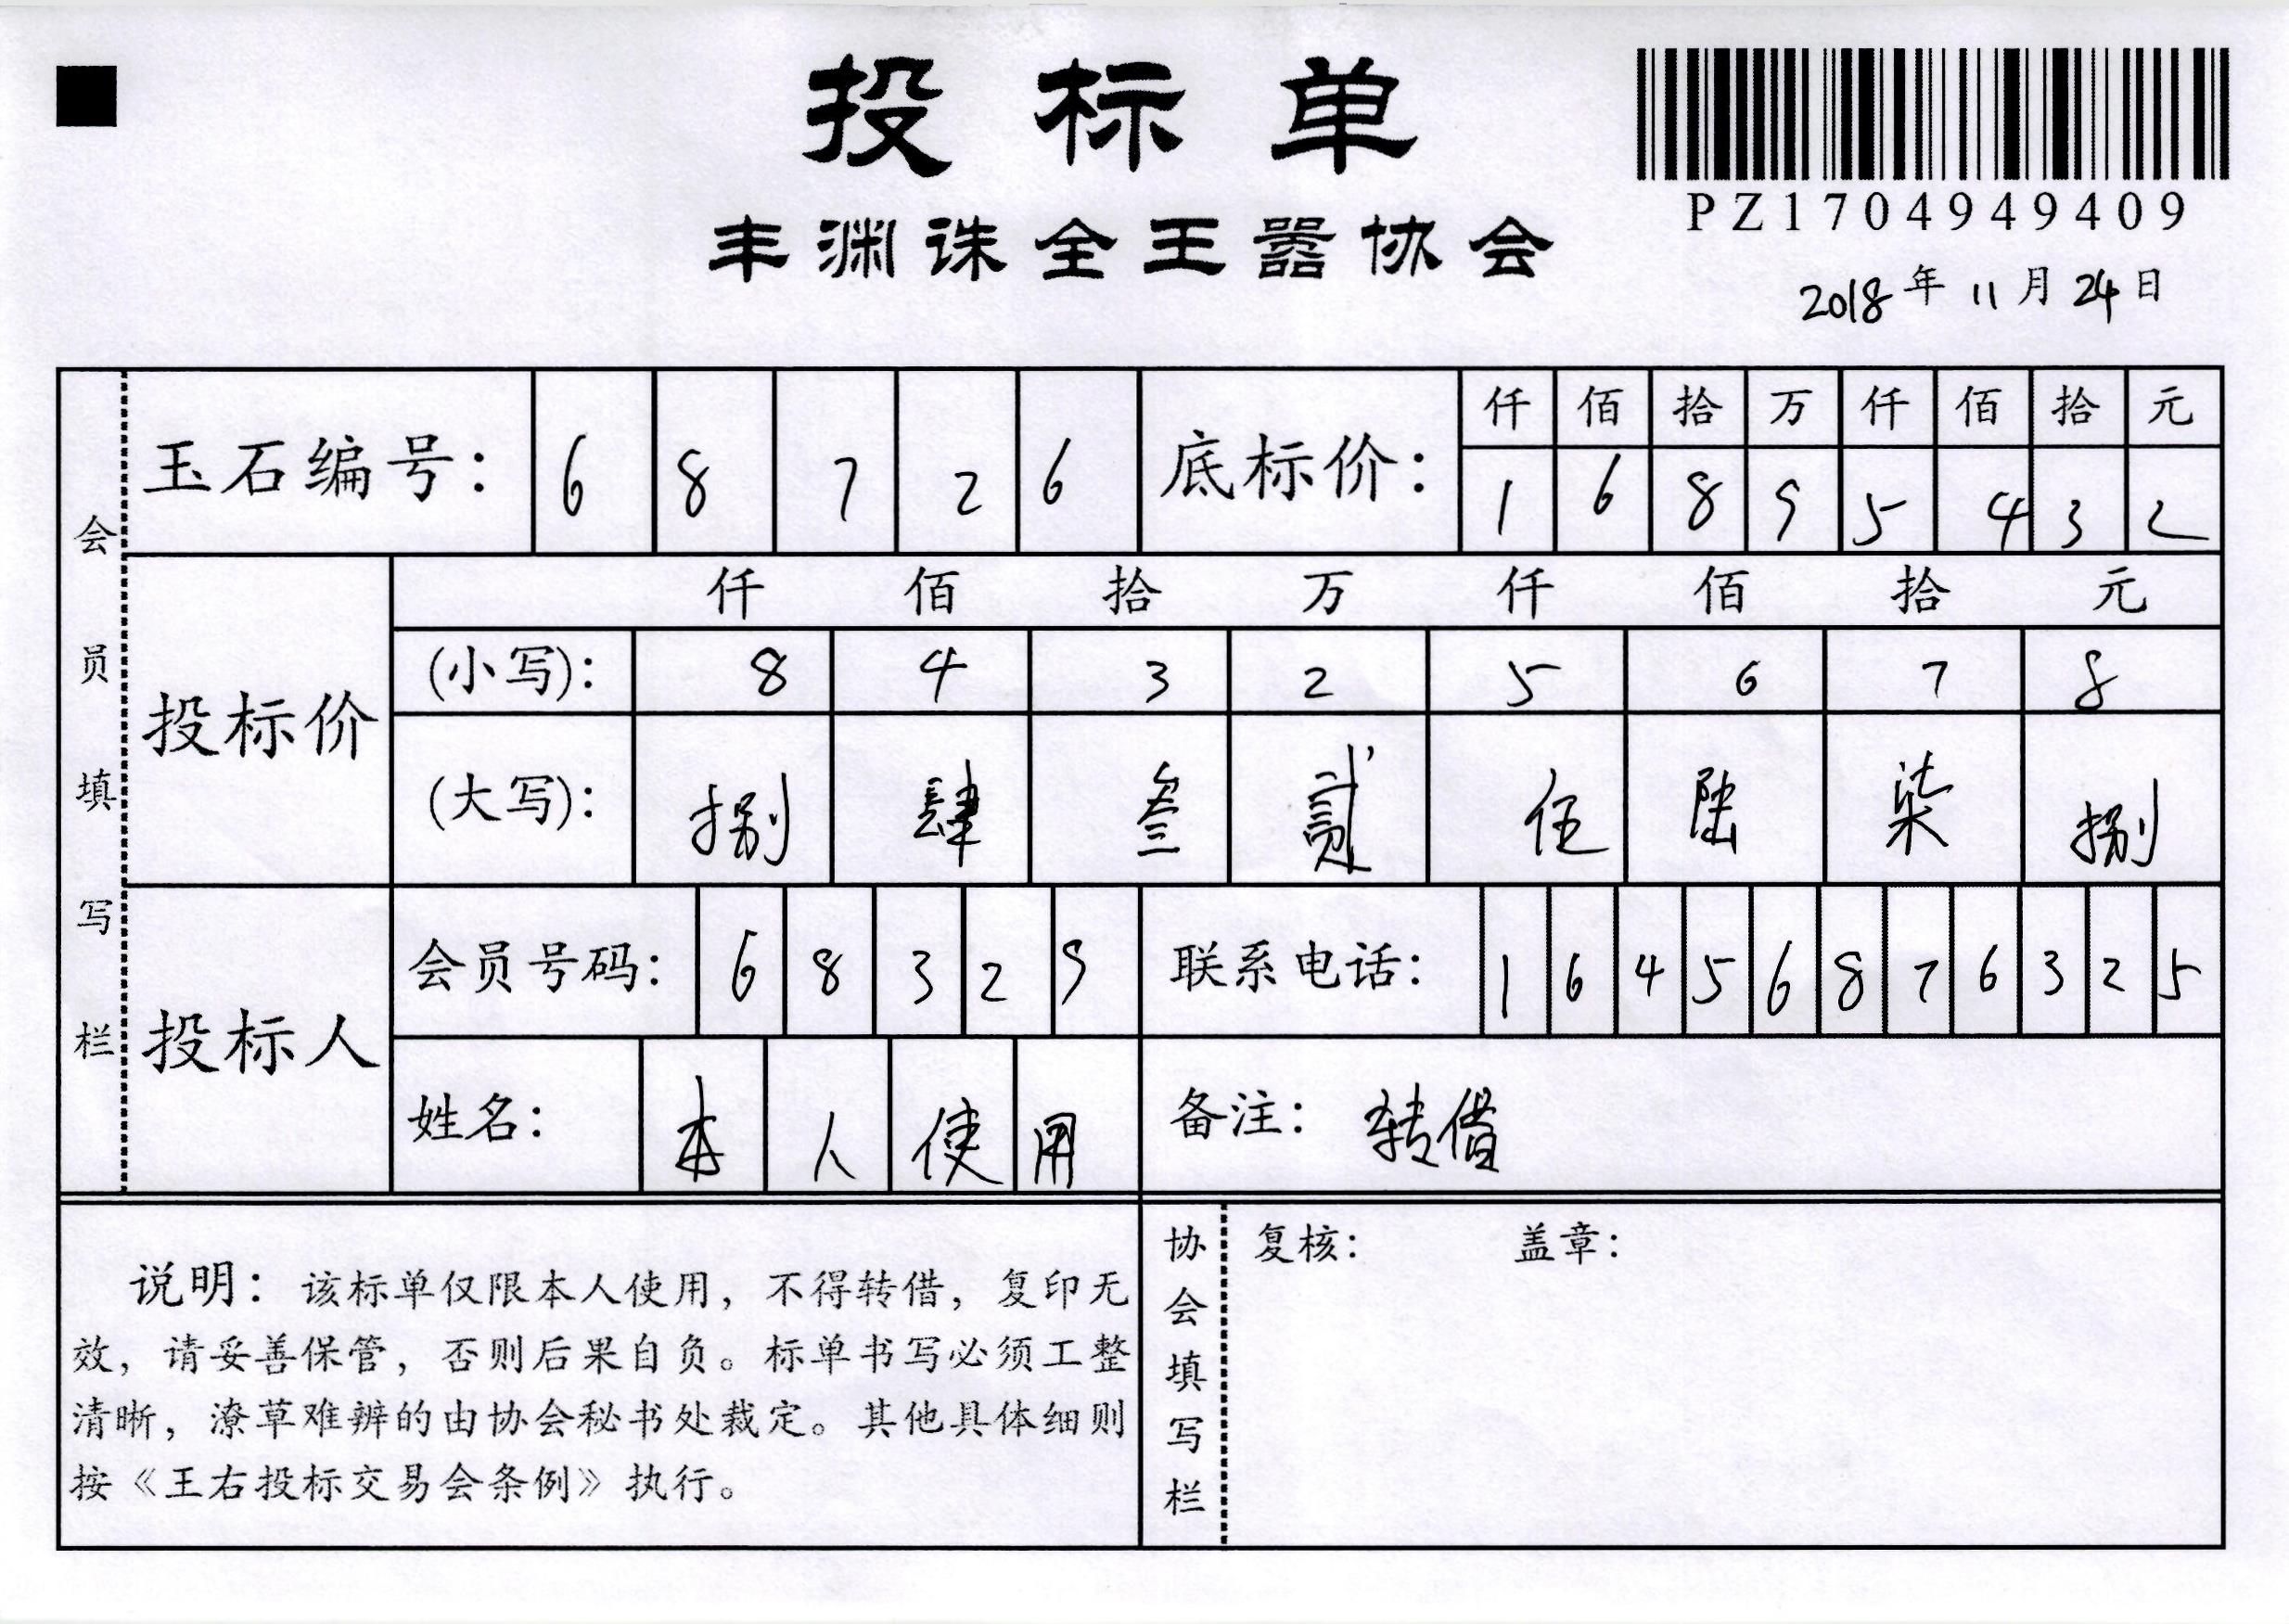 投标单
丰渊诛全王器协会
PZ1704949409
2018年11月24日
会员填写栏
玉石编号: 6 8 7 2 6
底标价: 仟 佰 拾 万 仟 佰 拾 元
1 6 8 9 5 4 3 2
投标价
仟 佰 拾 万 仟 佰 拾 元
(小写): 8 4 3 2 5 6 7 8
(大写): 捌 肆 叁 贰 伍 陆 柒 捌
投标人
会员号码: 6 8 3 2 9
联系电话: 1 6 4 5 6 8 7 6 3 2 5
姓名: 本 人 使 用
备注: 转借
说明: 该标单仅限本人使用, 不得转借, 复印无
效, 请妥善保管, 否则后果自负。标单书写必须工整
清晰, 潦草难辨的由协会秘书处裁定。其他具体细则
按《王右投标交易会条例》执行。
协会填写栏
复核: 盖章: